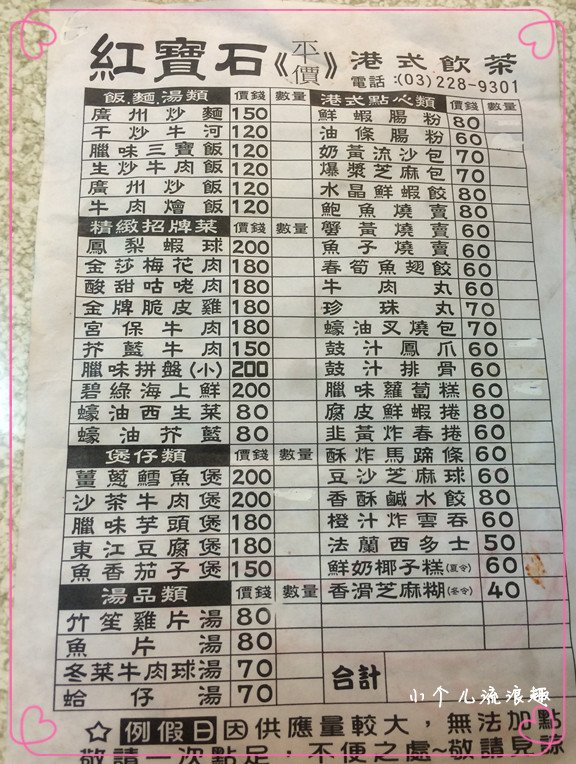 紅寶石《平價》港式飲茶
電話:(03)228-9301
飯.麵.湯類 價錢 數量
廣州炒麵 150
干炒牛河 120
臘味三寶飯 120
生炒牛肉飯 120
廣州炒飯 120
牛肉燴飯 120
精緻招牌菜 價錢 數量
鳳梨蝦球 200
金莎梅花肉 180
酸甜咕咾肉 180
金牌脆皮雞 180
宮保牛肉 180
芥藍牛肉 150
臘味拼盤(小) 200
碧綠海上鮮 200
蠔油西生菜 80
蠔油芥藍 80
煲仔類 價錢 數量
薑蔥鱈魚煲 200
沙茶牛肉煲 200
臘味芋頭煲 180
東江豆腐煲 180
魚香茄子煲 150
湯品類 價錢 數量
竹笙雞片湯 80
魚片湯 80
冬菜牛肉球湯 70
蛤仔湯 70
港式點心類 價錢 數量
鮮蝦腸粉 80
油條腸粉 60
奶黃流沙包 70
爆漿芝麻包 70
水晶鮮蝦餃 80
鮑魚燒賣 80
蟹黃燒賣 60
魚子燒賣 60
春筍魚翅餃 60
牛肉丸 60
珍珠丸 70
蠔油叉燒包 70
鼓汁鳳爪 60
鼓汁排骨 60
臘味蘿蔔糕 60
腐皮鮮蝦捲 80
韭黃炸春捲 60
酥炸馬蹄條 60
豆沙芝麻球 60
香酥鹹水餃 80
橙汁炸雲吞 60
法蘭西多士 50
鮮奶椰子糕(夏令) 60
香滑芝麻糊(冬令) 40
合計
☆例假日因供應量較大，無法加點
敬請一次點足，不便之處~敬請見諒
小个儿流浪趣